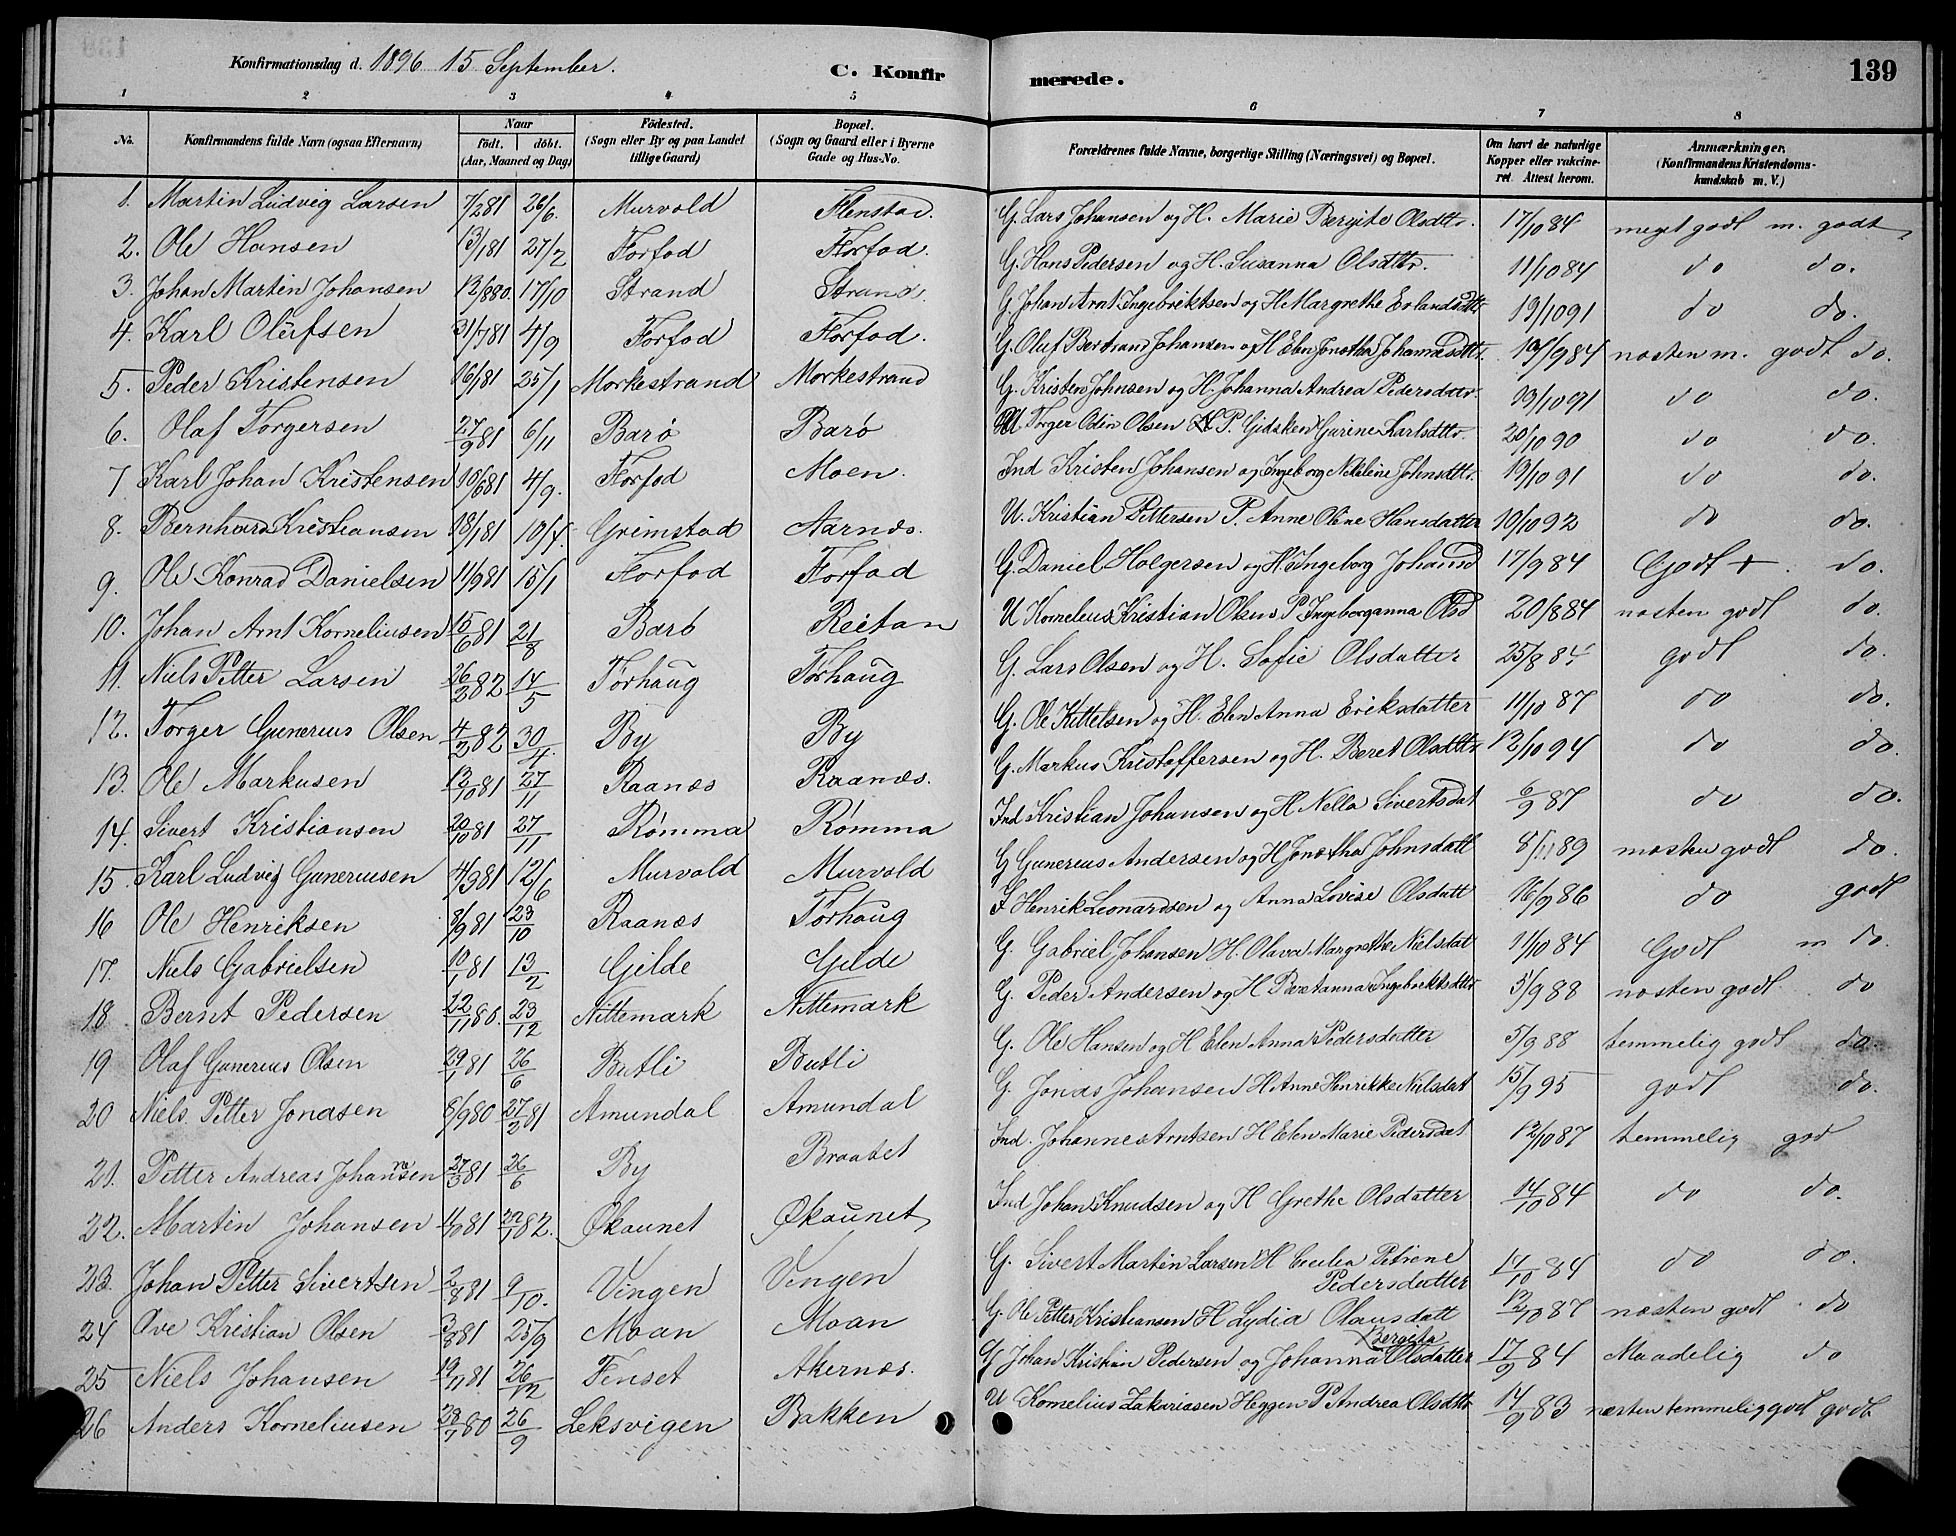 Konfirmationsdag d. 1896 15 September.
C. Konfirmerede.
139
1 2 3 4 5 6 7 8
No. Konfirmandens fulde Navn (ogsaa Efternavn) Naar født. døbt. (Aar, Maaned og Dag) Fødested. (Sogn eller By og paa Landet tillige Gaard) Bopæl. (Sogn og Gaard eller i Byerne Gade og Hus-No. Forældrenes fulde Navne, borgerlige Stilling (Næringsvei) og Bopæl. Om havt de naturlige Kopper eller vakcineret. Attest herom. Anmærkninger. (Konfirmandens Kristendomskundskab m. V.)
1. Martin Ludvig Larsen 7/2 81 26/6. Murvold Flenstad. G. Lars Johansen og H. Marie Bergite Olsdtr. 17/10 84 meget godt m. godt
2. Ole Hansen 13/1 81 27/2 Forfod Forfod. G. Hans Pedersen og H. Susanna Olsdttr. 11/10 84 do do.
3. Johan Martin Johansen 12/8 80. 17/10 Strand Strand. G. Johan Arnt Ingebriktsen og H. Margrethe Erlandsdtr 19/10 91 do do.
4. Karl Olufsen 31/7 81 4/9 Forfod Forfod. G. Oluf Bertrand Johansen og H Elen Jonetha Johannesdttr. 19/9 84 næsten m. godt do.
5. Peder Kristensen 16/81 25/1 Morkestrand Morkestrand G. Kristen Johnsen og H. Johanna Andrea Pedersdatr. 19/10 91 do do.
6. Olaf Torgersen 27/9 81 6/11 Barø Barø U Torger Odin Olsen P. Gidsken Gurine Karlsdttr. 20/10 90 do do.
7 Karl Johan Kristensen 10/6 81 4/9. Forfod Moen. Ind Kristen Johansen og Ingeborg Nikoline Johnsdttr. 19/10 91 do do.
8. Bernhard Kristiansen 18/1 81 10/4. Grimstad Aarnæs. U. Kristian Pettersen P. Anne Oline Hansdatter 10/10 92 do do.
9. Ole Konrad Danielsen 11/9 81 15/1 Forfod Forfod G. Daniel Holgersen og H. Ingeborg Johansd 17/9 84 Godt + do.
10. Johan Arnt Korneliusen 15/6 81 21/8 Barø Reitan U Kornelius Kristian Olsen P Ingeborganna Olsd 20/8 84 næsten godt do.
11. Niels Petter Larsen 26/3 82 14/5 Torhaug Torhaug G. Lars Olsen og H. Sofie Olsdatter 25/8 84 godt do.
12. Torger Gunerius Olsen 4/3 82 30/4. By By G. Ole Kittelsen og H. Elen Anna Eriksdatter 11/10 87 do do.
13. Ole Markusen 13/10 81 27/11 Raanæs Raanæs. G. Markus Kristoffersen og H. Beret Olsdttr 12/10 94 do do.
14. Sivert Kristiansen 20/10 81 27/11 Rømma Rømma Ind Kristian Johansen og H. Nella Sivertsdat 6/9 87 do do.
15. Karl Ludvig Guneriusen 4/3 81 12/6 Murvold Murvold G Gunerius Andersen og H Jonetha Johnsdatt 8/11 89 næsten godt do.
16 Ole Henriksen 8/9 81 23/10 Raanæs Torhaug F Henrik Leonardsen og Anna Lovise Olsdatt 16/9 86 do godt
17. Niels Gabrielsen 10/1 81 13/2 Gilde Gilde G. Gabriel Johansen H. Olava Margrethe Nielsdat 11/10 84 Godt m do.
18. Bernt Pedersen 22/11 80. 23/12 Nittemark Nittemark G. Peder Andersen og H Beretanna Ingebriktsdttr 5/9 88 næsten godt do
19 Olaf Gunerius Olsen 29/1 81 26/6 Butli Butli G. Ole Hansen og H Elen Anna Pedersdatter 5/9 88 temmelig godt do.
20 Niels Petter Jonasen 8/9 80 27/3 81 Amundal Amundal G. Jonas Johansen H Anne Henrikke Nielsdat 15/9 95 godt do.
21. Petter Andreas Johannesen 27/3 81 26/6 By Braatet Ind. Johannes Arntsen H Elen Marie Pedersdat 12/10 87 temmelig god
22. Martin Johansen 4/10 81 22/1 82. Økaunet Økaunet Ind Johan Knudsen og H Grethe Olsdatter 14/10 84 do do.
23. Johan Petter Sivertsen 2/8 81 9/10. Vingen Vingen G. Sivert Martin Larsen H Cecilia Petrine Pedersdatter 14/10 84 do do.
24 Ove Kristian Olsen 3/8 81 25/9 Moan Moan G. Ole Petter Kristiansen H Lydia Olausdatt 12/10 87 næsten godt do
25 Niels Johansen 19/11 81. 26/12 Finset Akernæs. G Johan Kristian Pedersen og Johanna Bergita Olsdatter 17/9 84 Maadelig do
26 Anders Korneliusen 28/7 80 26/9 Leksvigen Bakken U Kornelius Zakariasen Heggen P Andrea Olsdtr 14/9 83 næsten temmelig godt godt